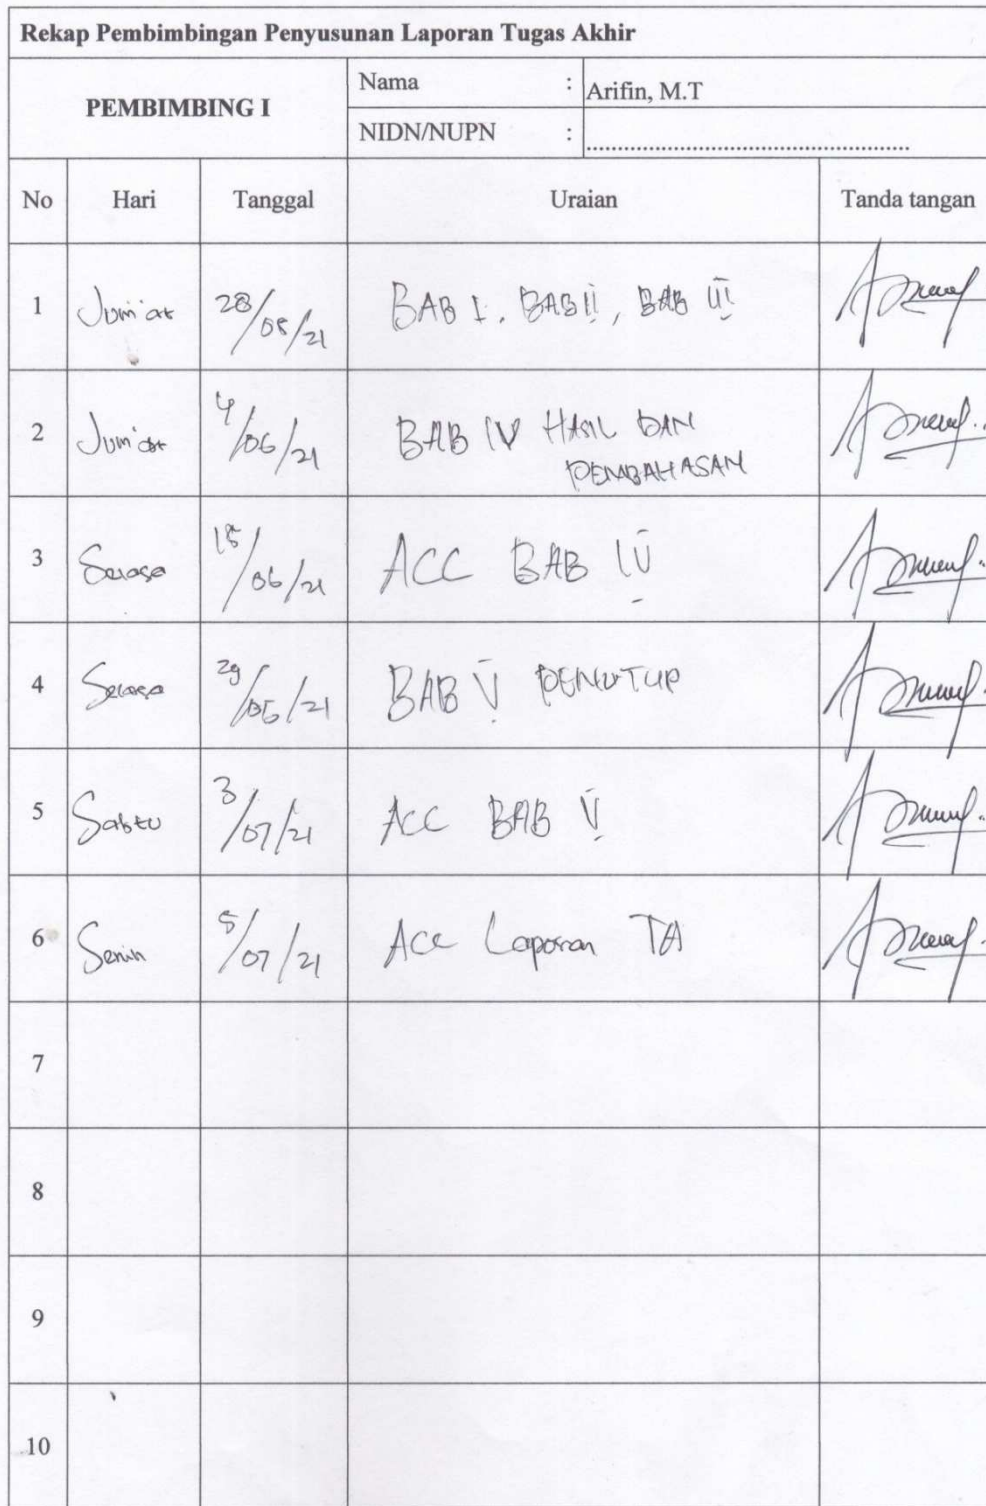 Rekap Pembimbingan Penyusunan Laporan Tugas Akhir
PEMBIMBING I
Nama : Arifin, M.T
NIDN/NUPN : ........................................................
No Hari Tanggal Uraian Tanda tangan
1 Jum'at 28/05/21 BAB I, BAB II, BAB III
2 Jum'at 4/06/21 BAB IV HASIL DAN
PEMBAHASAN
3 Selasa 15/06/21 ACC BAB IV
4 Selasa 29/06/21 BAB V PENUTUP
5 Sabtu 3/07/21 ACC BAB V
6 Senin 5/07/21 Acc Laporan TA
7
8
9
10